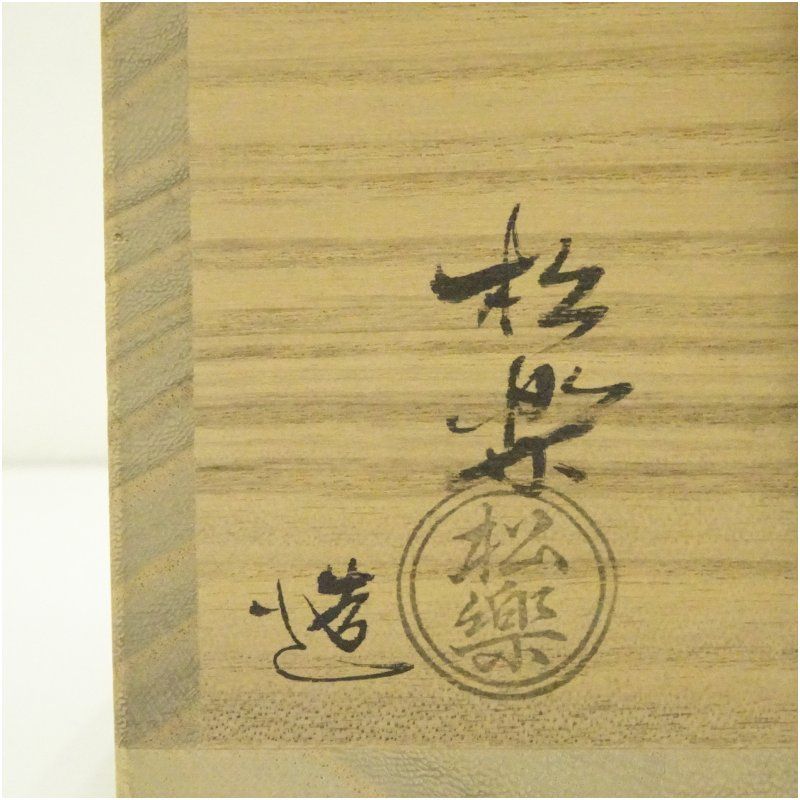 松楽
松樂
造